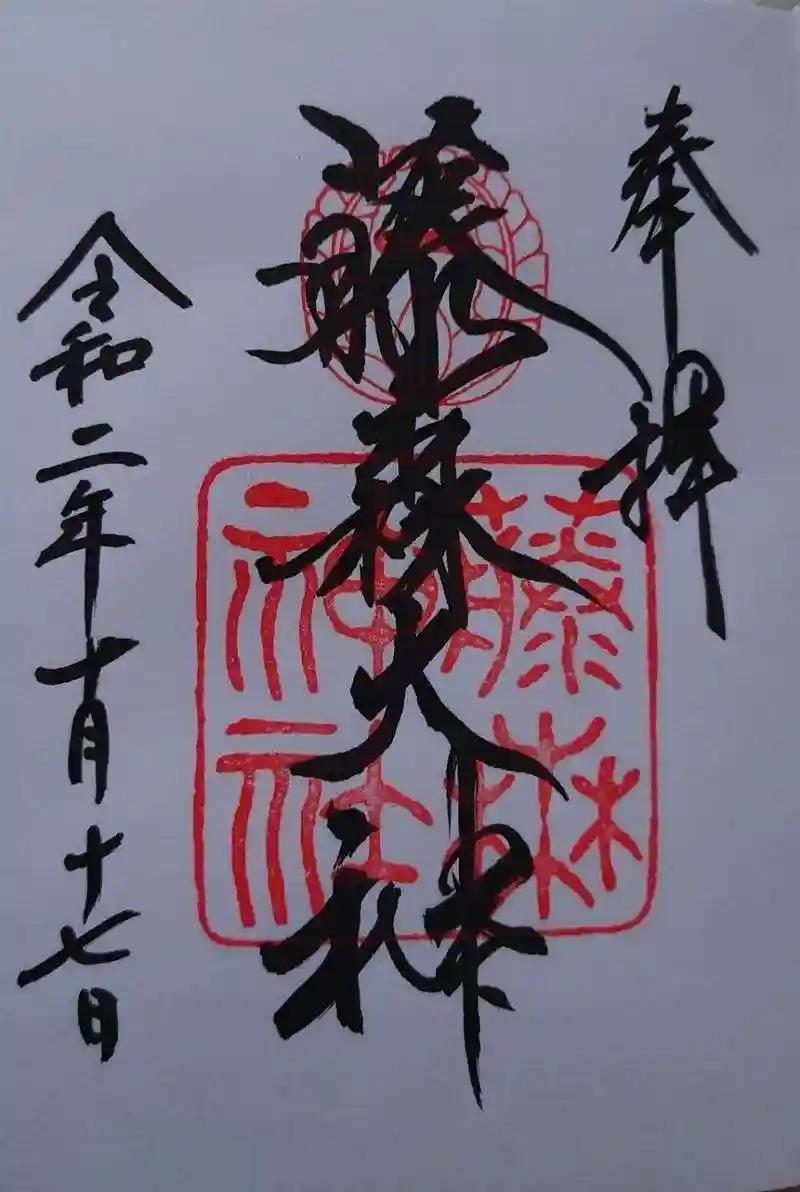 奉拝
藤森大神
令和二年十月十七日
藤森
神社